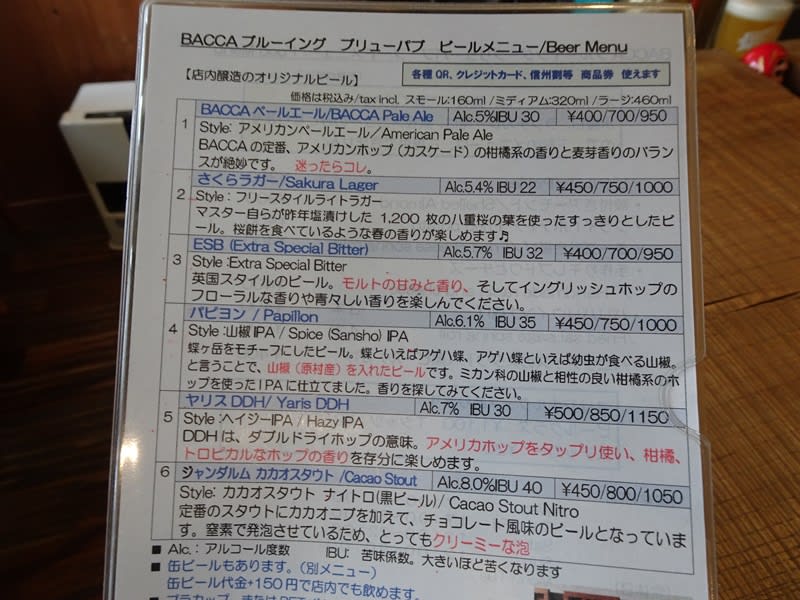 BACCA ブルーイング ブリューパブ ビールメニュー/Beer Menu
【店内醸造のオリジナルビール】
各種QR、クレジットカード、信州割等 商品券 使えます
価格は税込み/tax incl. スモール:160ml /ミディアム:320ml /ラージ:460ml
1 BACCAペールエール/BACCA Pale Ale Alc.5%IBU 30 ¥400/700/950
Style: アメリカンペールエール/American Pale Ale
BACCAの定番、アメリカンホップ(カスケード)の柑橘系の香りと麦芽香りのバラン
スが絶妙です。 迷ったらコレ。
2 さくらラガー/Sakura Lager Alc.5.4% IBU 22 ¥450/750/1000
Style:フリースタイルライトラガー
マスター自らが昨年塩漬けした 1,200 枚の八重桜の葉を使ったすっきりとしたビ
ール。桜餅を食べているような春の香りが楽しめます♪
3 ESB (Extra Special Bitter) Alc.5.7% IBU 32 ¥400/700/950
Style :Extra Special Bitter
英国スタイルのビール。モルトの甘みと香り、そしてイングリッシュホップの
フローラルな香りや青々しい香りを楽しんでください。
4 パピヨン / Papillon Alc.6.1% IBU 35 ¥450/750/1000
Style :山椒IPA / Spice (Sansho) IPA
蝶ヶ岳をモチーフにしたビール。蝶といえばアゲハ蝶、アゲハ蝶といえば幼虫が食べる山椒。
と言うことで、山椒(原村産)を入れたビールです。ミカン科の山椒と相性の良い柑橘系のホ
ップを使ったIPAに仕立てました。香りを探してみてください。
5 ヤリスDDH/ Yaris DDH Alc.7% IBU 30 ¥500/850/1150
Style :ヘイジーIPA / Hazy IPA
DDHは、ダブルドライホップの意味。アメリカホップをタップリ使い、柑橘、
トロピカルなホップの香りを存分に楽しめます。
6 ジャンダルム カカオスタウト /Cacao Stout Alc.8.0%IBU 40 ¥450/800/1050
Style: カカオスタウト ナイトロ(黒ビール)/ Cacao Stout Nitro
定番のスタウトにカカオニブを加えて、チョコレート風味のビールとなっていま
す。窒素で発泡させているため、とってもクリーミーな泡
■ Alc.:アルコール度数 IBU: 苦味係数。大きいほど苦くなります
■ 缶ビールもあります。(別メニュー)
缶ビール代金+150円で店内でも飲めます。